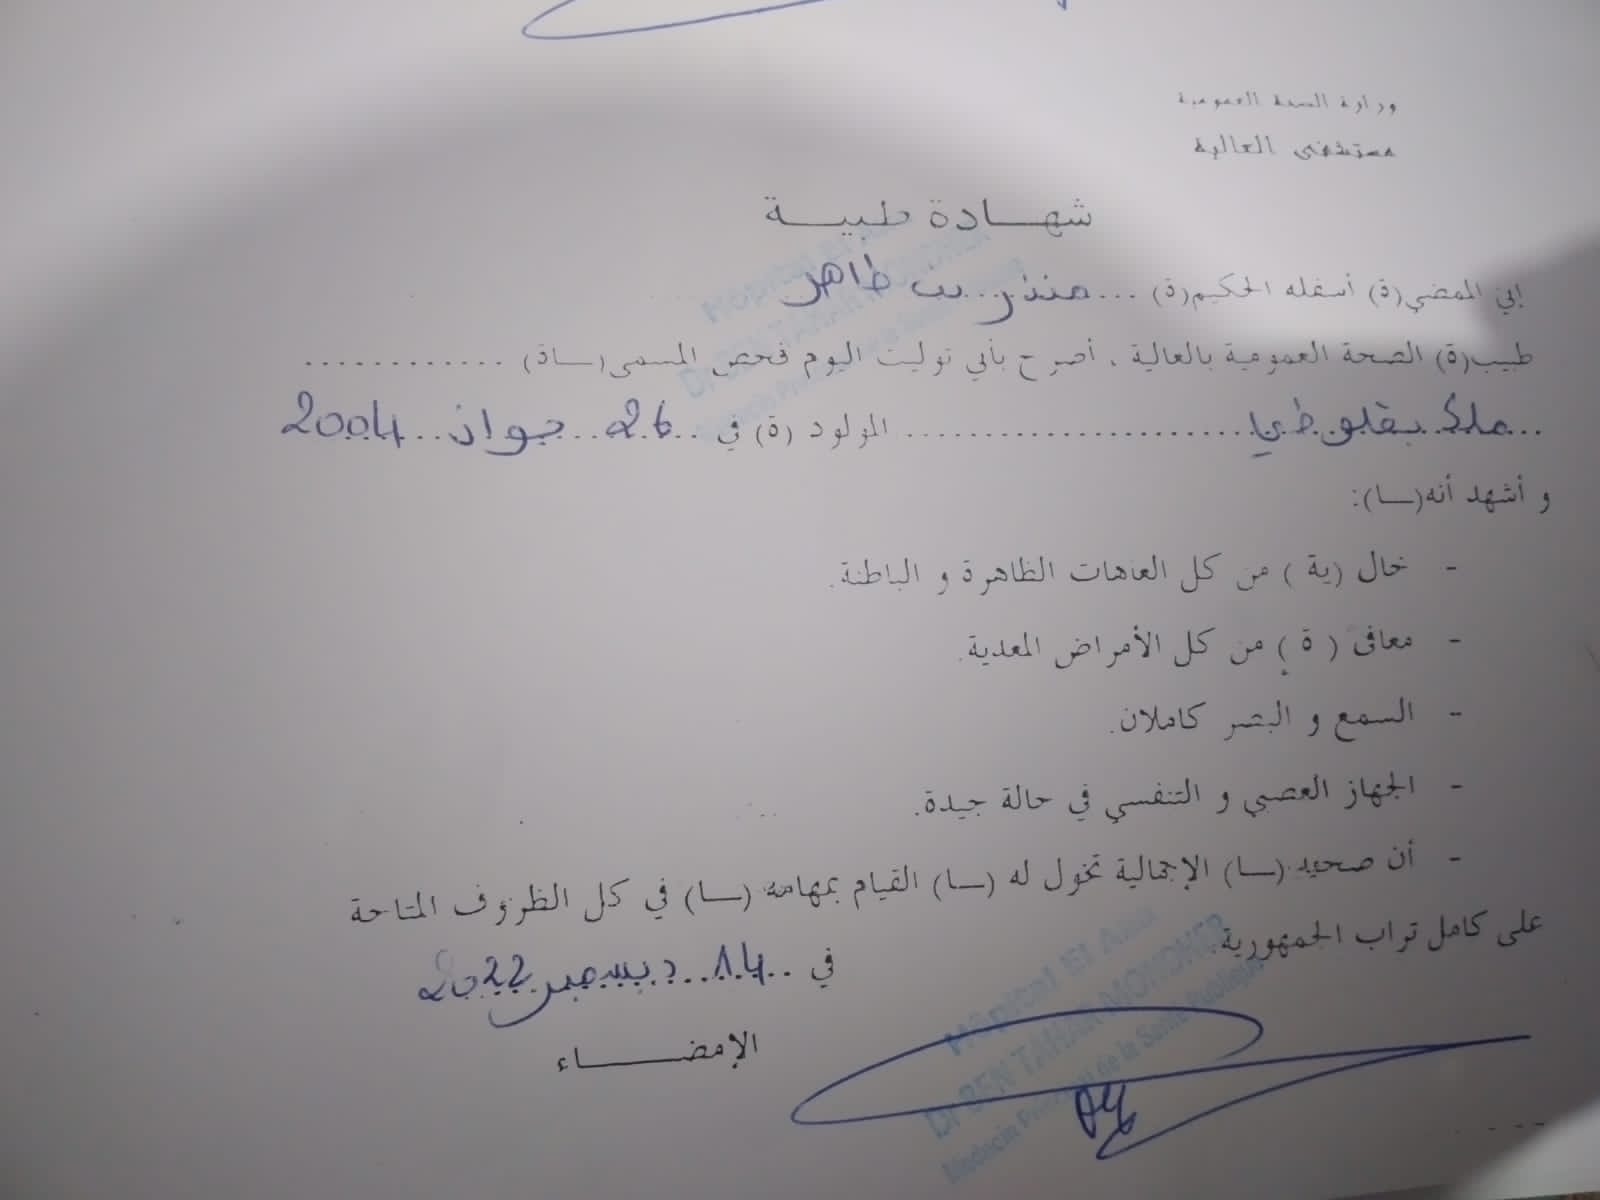 وزارة الصحة العمومية
مستشفى العالية
شهـــادة طبيـــة
إني الممضي(ة) أسفله الحكيم(ة) ... منذر بن طاهر
طبيب(ة) الصحة العمومية بالعالية ، أصرح بأني توليت اليوم فحص المسمى(ـــاة) ............
ملاك بقلوطي ........................ المولود (ة) في ..26.. جوان ..2004
و أشهد أنه(ـــا):
- خال (ية ) من كل العاهات الظاهرة و الباطنة.
- معافى ( ة ) من كل الأمراض المعدية.
- السمع و البصر كاملان.
- الجهاز العصبي و التنفسي في حالة جيدة.
- أن صحته (ـــا) الإجمالية تخول له (ـــا) القيام بمهامه (ـــا) في كل الظروف المتاحة
على كامل تراب الجمهورية.
في ..14.. ديسمبر 2022
الإمضـــــــاء
Hôpital El Alia
Dr BEN TAHAR MONDHER
Médecin Principal de la Santé Publique